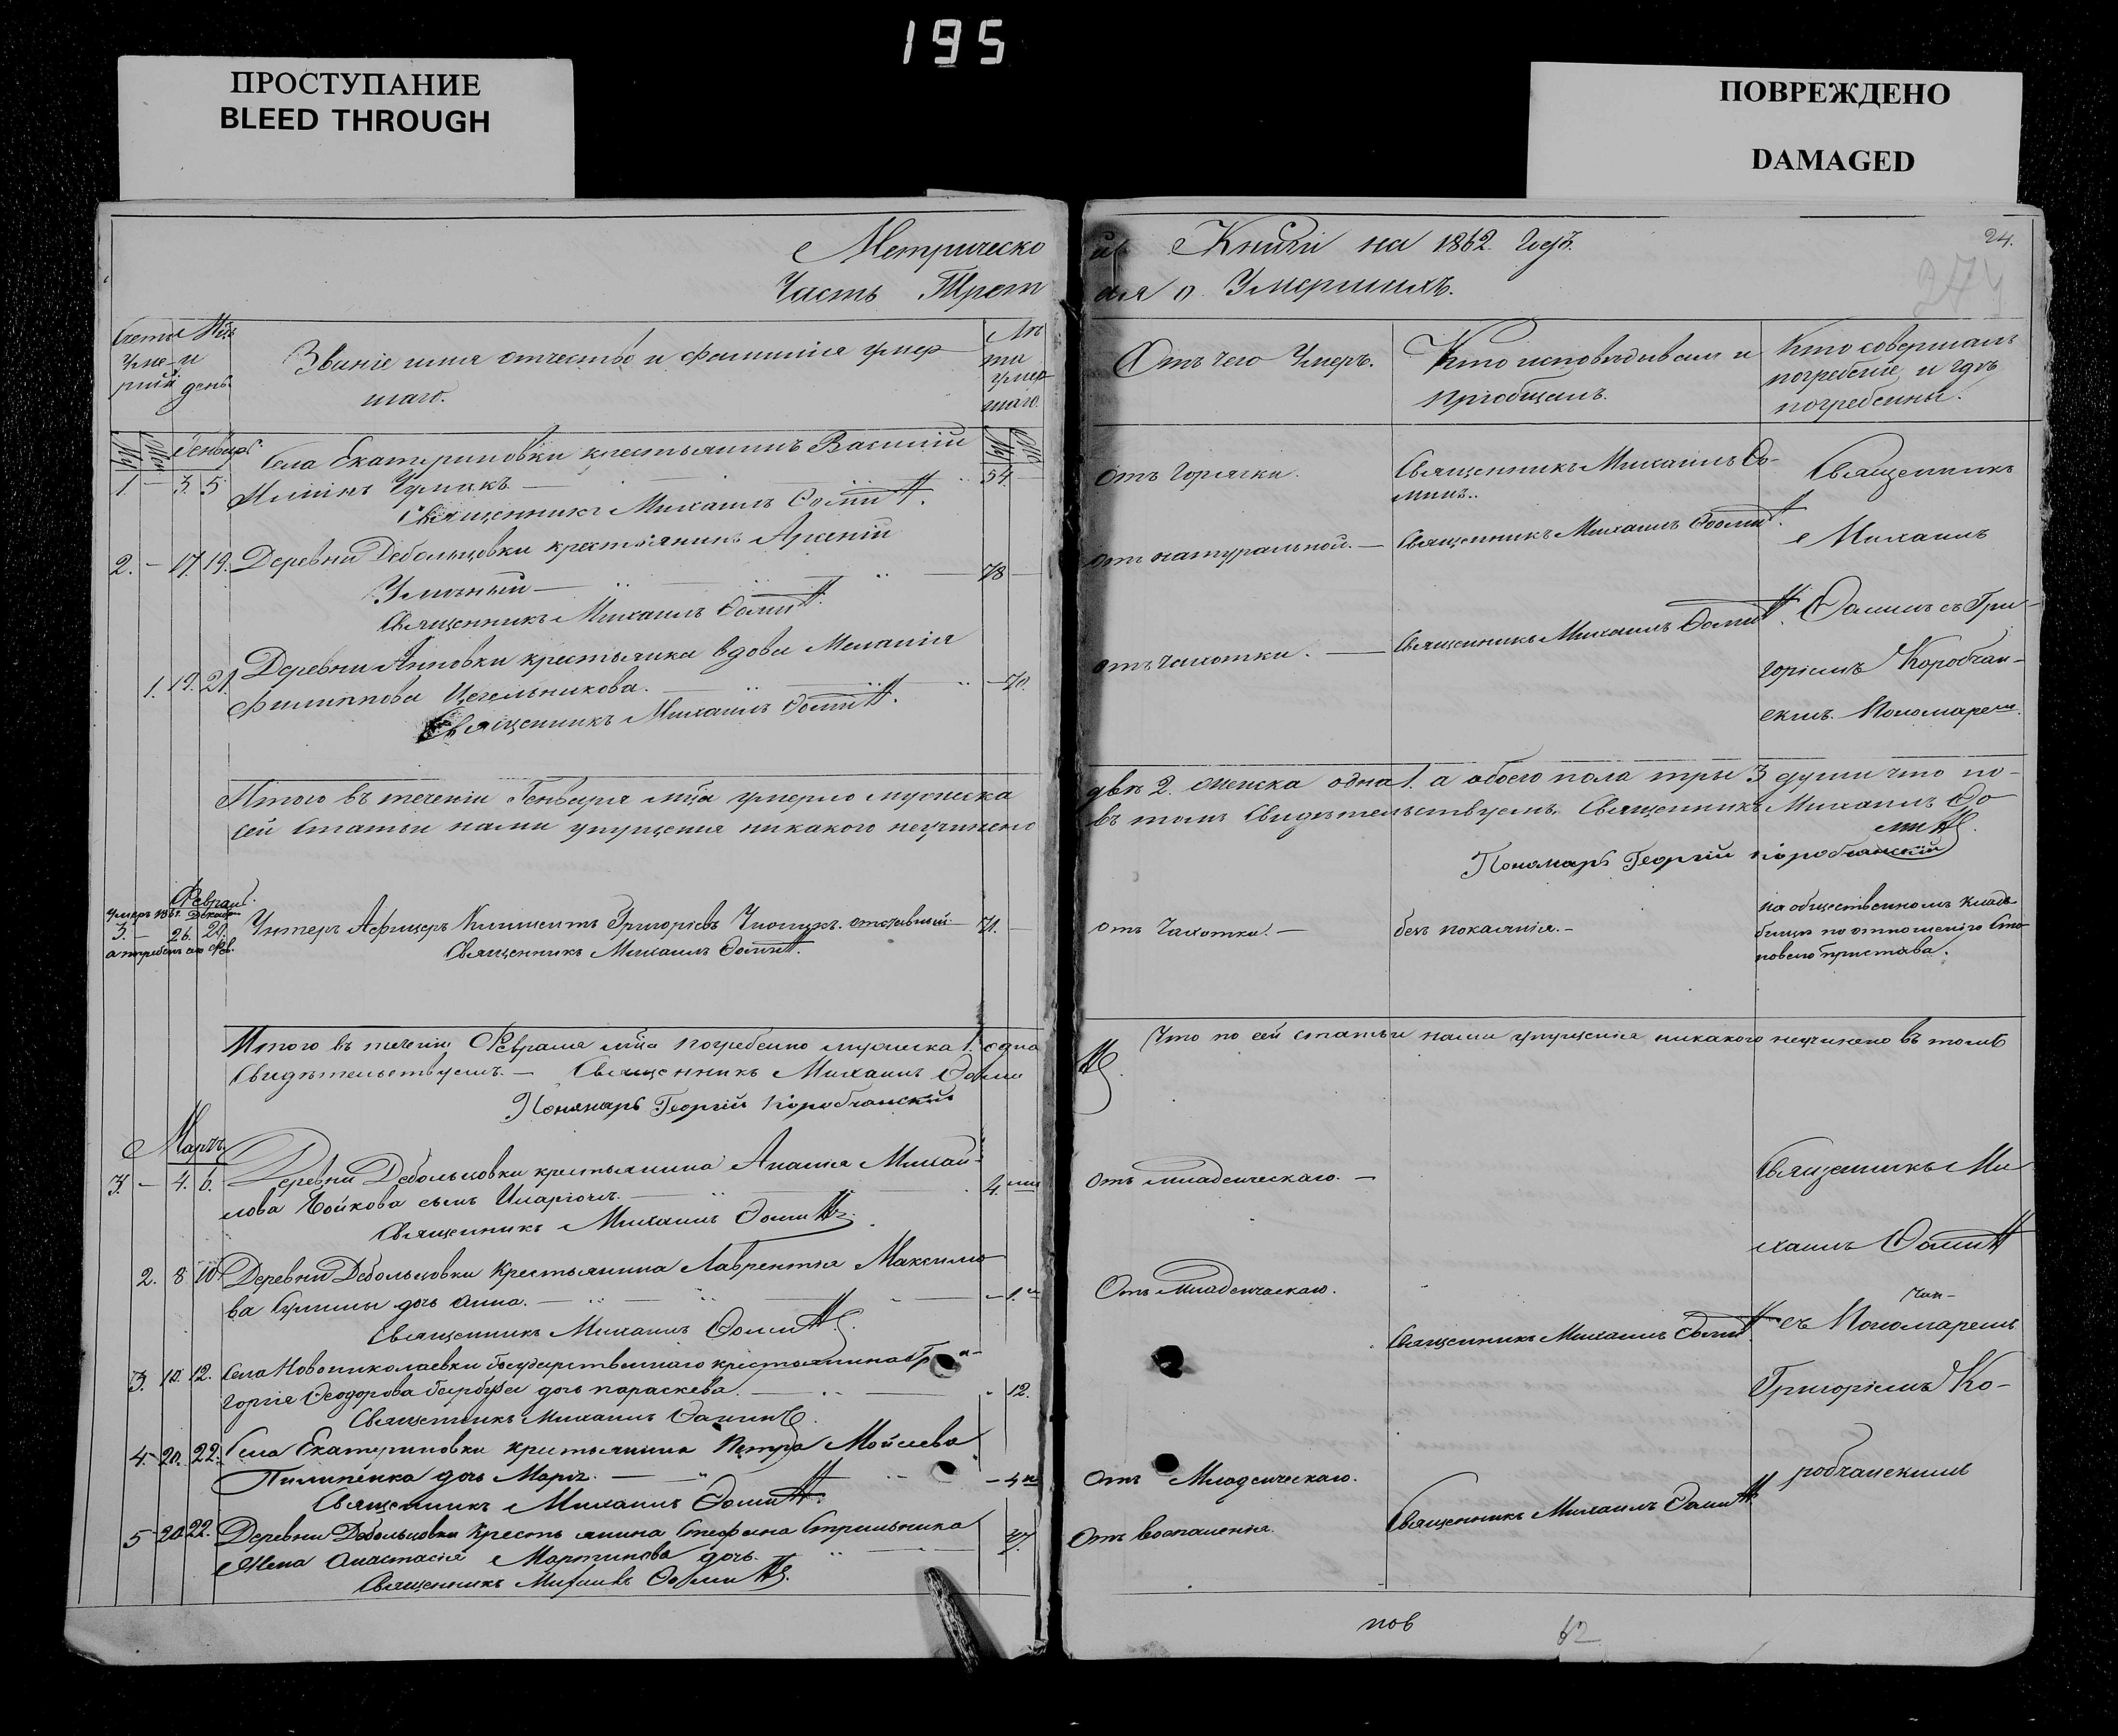 195
ПРОСТУПАНИЕ
BLEED THROUGH
ПОВРЕЖДЕНО
DAMAGED
Метрическо
Часть Трет
й Книги на 1862 Годъ.
ая о Умершихъ.
24.
274
Счетъ
Умершихъ
Мцъ и день
Званіе имя отчество и фамилія умершаго.
Лѣта умершаго.
Отъ чего Умеръ.
Кто исповѣдывалъ и
пріобщалъ.
Кто совершалъ
погребеніе и гдѣ
погребенны.
Генварь
Села Екатериновки крестьянинъ Василій
1. — 3. 5
Чумакъ — 54. —
Священникъ Михаилъ Ѳоминъ.
Отъ Горячки.
Священникъ Михаилъ Ѳо-
минъ.
Священникъ
2. — 17. 19. Деревни Дебольцовки крестьянинъ Арсеній
78 —
Священникъ Михаилъ Ѳоминъ.
отъ натуральной. —
Священникъ Михаилъ Ѳоминъ.
Михаилъ
1. 19. 21. Деревни Анновки крестьянка вдова Меланія
Филиппова Цегельникова. — 70.
Священникъ Михаилъ Ѳоминъ.
отъ чахотки. —
Священникъ Михаилъ Ѳоминъ.
Ѳоминъ съ Гри-
горіемъ Коробчан-
скимъ Пономаремъ.
Итого въ теченіи Генваря мца умерло мужеска
двѣ 2. женска одна 1. а обоего пола три 3 души что по-
сей статьи нами упущенія никакого неучинено
въ томъ Свидѣтельствуемъ. Священникъ Михаилъ Ѳо-
минъ.
Пономарь Георгій Коробчанскій
Феврал.
умеръ 1861. Декабр.
3. — 26. 29. Унтеръ Афицеръ Климентъ Григоріевъ отставный 71. —
а погребенъ Фев.
Священникъ Михаилъ Ѳоминъ.
отъ Чахотки. —
безъ покаянія. —
на общественномъ клад-
бищѣ по отношенію Ста-
новаго пристава.
Итого въ теченіи Февраля мца погребено мужеска 1. одна
Что по сей статьи нами упущенія никакого неучинено въ томъ
Свидѣтельствуемъ. — Священникъ Михаилъ Ѳоминъ.
Пономарь Георгій Коробчанскій
Мартъ.
3. — 4. 6. Деревни Дебольцовки крестьянина Ананія Михай-
лова Бойкова сынъ Иларіонъ. — 4.
Священникъ Михаилъ Ѳоминъ.
отъ младенческаго. —
Священникъ Ми-
хаилъ Ѳоминъ
2. 8 10 Деревни Дебольцовки Крестьянина Лаврентія Максимо-
ва дочь Анна. — 1.
Священникъ Михаилъ Ѳоминъ.
Отъ Младенческаго.
3. 10. 12. Села Новониколаевки Государственнаго крестьянина Гри-
горія Ѳеодорова дочь параскева. — 12.
Священникъ Михаилъ Ѳоминъ.
Священникъ Михаилъ Ѳоминъ
съ Пономаремъ
Григоріемъ Ко-
4. 20. 22. Села Екатериновки крестьянина Петра Мойсеева
Пилипенка дочь Марія. — 4
Священникъ Михаилъ Ѳоминъ.
Отъ Младенческаго.
робчанскимъ
5 20 22. Деревни Дебольцовки Крестьянина Стефана Стрильника
Жена Анастасія Мартинова дочь. 37.
Священникъ Михаилъ Ѳоминъ.
Отъ воспаленія.
Священникъ Михаилъ Ѳоминъ
пов
62